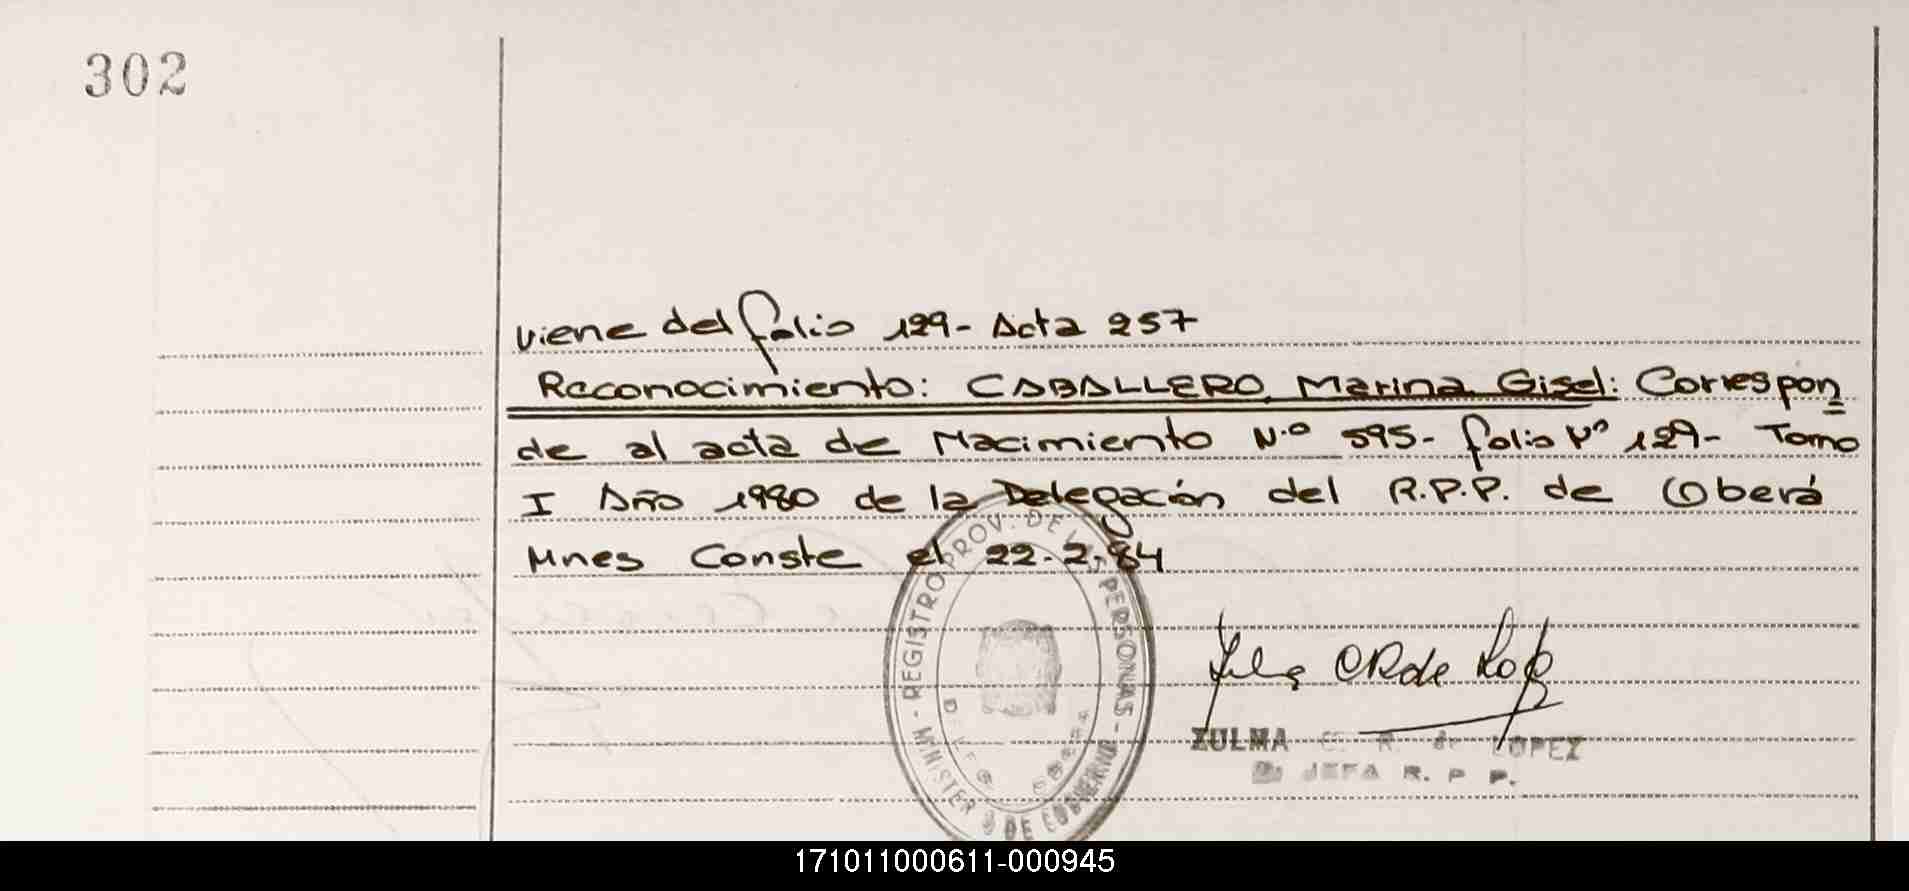 302
viene del folio 129- Acta 257
Reconocimiento: CABALLERO, Marina Gisel: Correspon=
de al acta de Nacimiento N.º 595- folio Nº 129- Tomo
I Año 1980 de la Delegación del R.P.P. de Oberá
Mnes Conste el 22-2-84
MINISTERIO DE GOBIERNO - REGISTRO PROV. DE LAS PERSONAS -
ZULMA R. de LOPEZ
JEFA R. P. P.
171011000611-000945